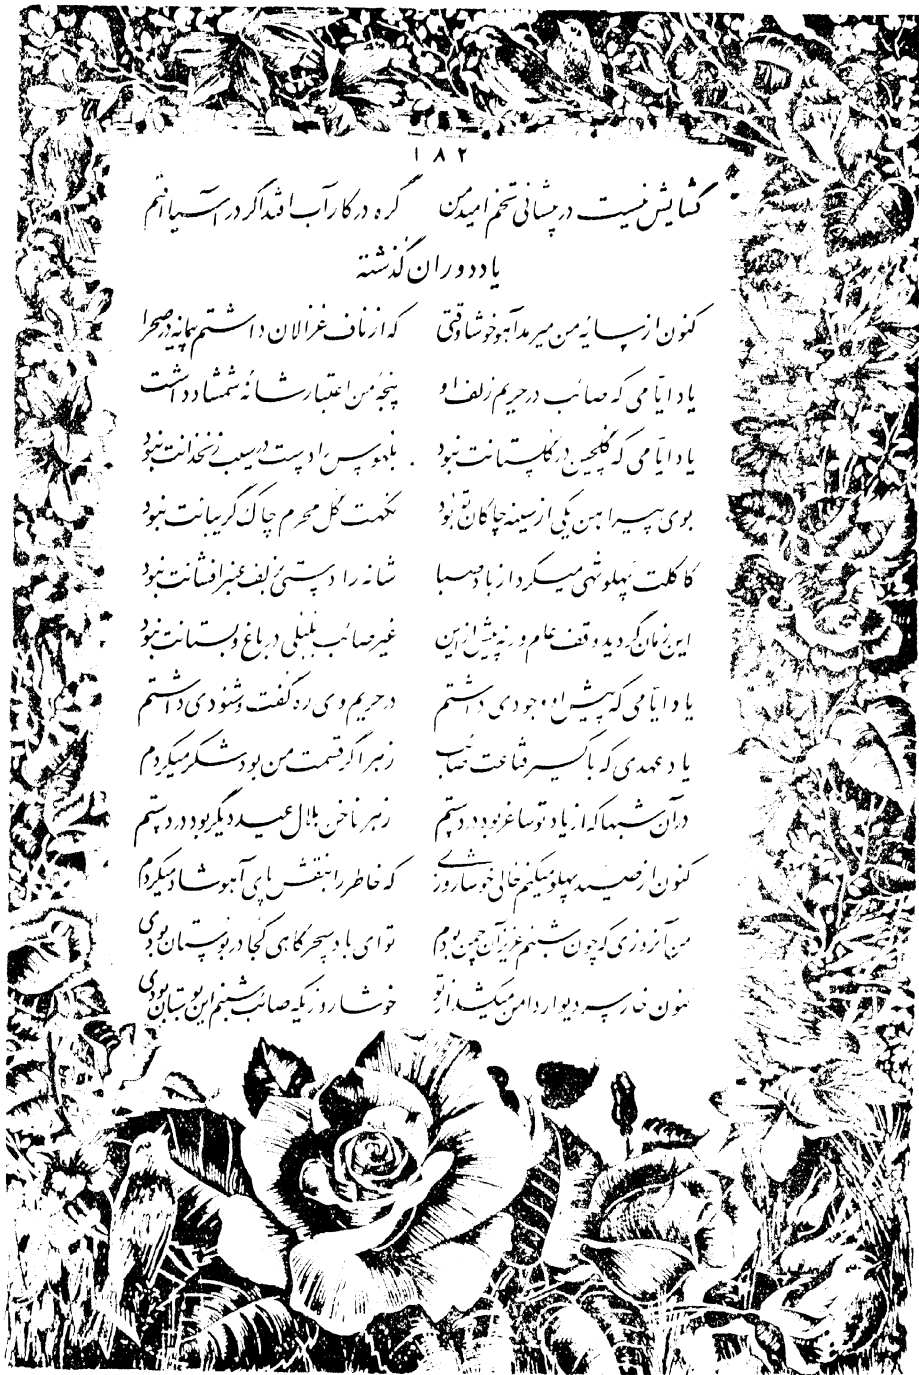 ۱۸۲
گشایش نیست در پیشانی تخم امید من گره در کار آب افتد اگر در آسیا افتم
یاد دوران گذشته
کنون از سایهٔ من میرمد آهو خوشا وقتی که از ناف غزالان داشتم پیمانه در صحرا
یاد ایامی که صائب در حریم زلف او پنجهٔ من اعتبار شانهٔ شمشاد داشت
یاد ایامی که گلچین در گلستانت نبود بلهوس را دست در سیب زنخدانت نبود
بوی پیراهن یکی از سینه چاکان تو بود نکهت گل محرم چاک گریبانت نبود
کاکلت پهلو تهی میکرد از باد صبا شانه را دستی بزلف عنبر افشانت نبود
این زمان گردید وقف عام ورنه پیش ازین غیر صائب بلبلی در باغ و بستانت نبود
یاد ایامی که پیش او وجودی داشتم در حریم وی ره گفت و شنودی داشتم
یاد عهدی که باکسیر قناعت صائب زهر اگر قسمت من بود شکر میکردم
در آن شبها که از یاد تو ساغر بود در دستم زهر ناخن هلال عید دیگر بود در دستم
کنون از صید پهلو میکنم خالی خوشا روزی که خاطر را بنقش پای آهو شاد میکردم
من آنروزی که چون شبنم عزیز آن چمن بودم تو ای باد سحرگاهی کجا در بوستان بودی
کنون خار سر دیوار دامن میکشد از تو خوشا روزیکه صائب شبنم این بوستان بودی